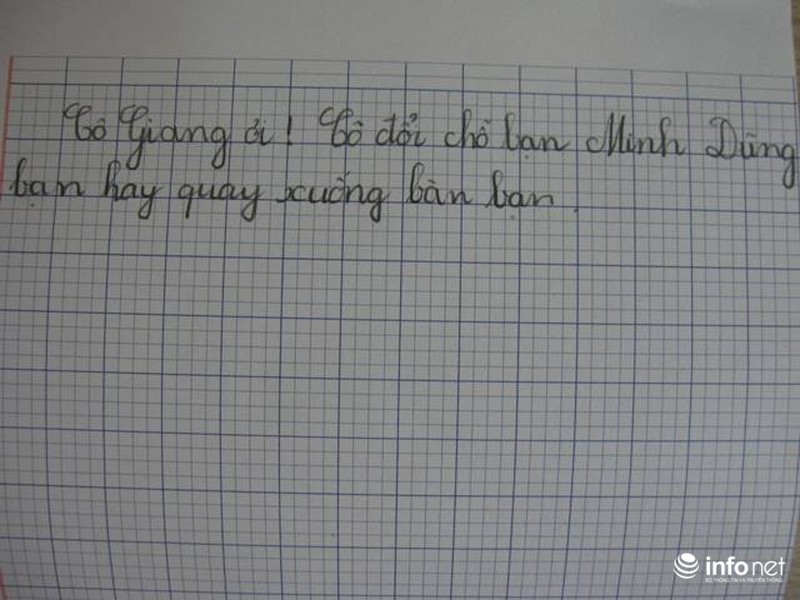 Cô Giang ơi! Cô đổi chỗ bạn Minh Dũng
bạn hay quay xuống bàn bạn.
infonet
BỘ THÔNG TIN VÀ TRUYỀN THÔNG